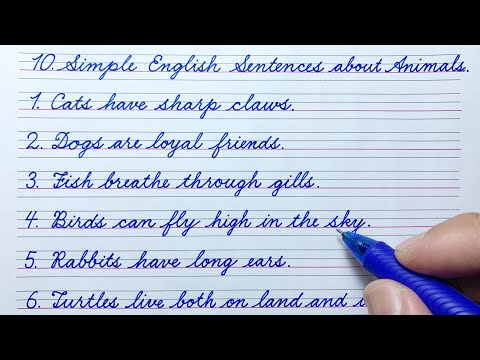 10. Simple English Sentences about Animals.
1. Cats have sharp claws.
2. Dogs are loyal friends.
3. Fish breathe through gills.
4. Birds can fly high in the sky.
5. Rabbits have long ears.
6. Turtles live both on land and